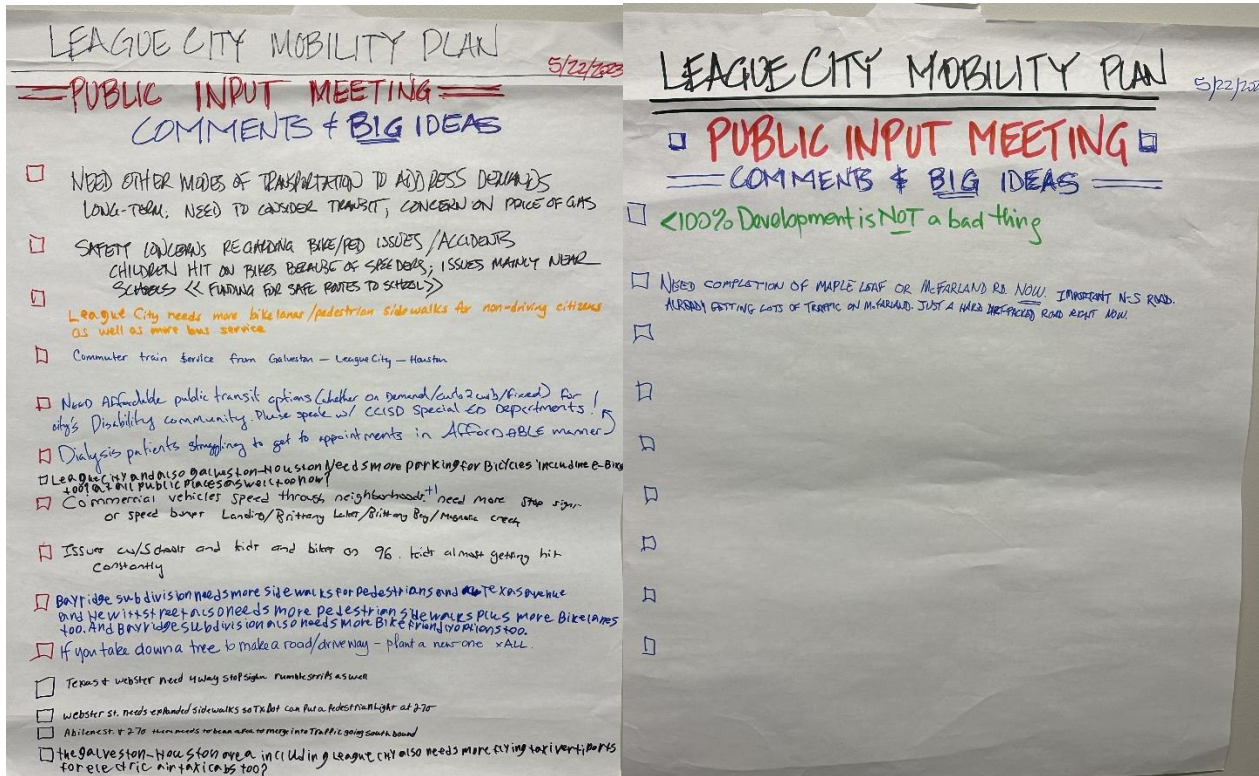 LEAGUE CITY MOBILITY PLAN
5/22/2023
PUBLIC INPUT MEETING
COMMENTS & BIG IDEAS
NEED OTHER MODES OF TRANSPORTATION TO ADDRESS DEMANDS
LONG-TERM. NEED TO CONSIDER TRANSIT, CONCERN ON PRICE OF GAS
SAFETY CONCERNS REGARDING BIKE/PED ISSUES/ACCIDENTS
CHILDREN HIT ON BIKES BECAUSE OF SPEEDERS; ISSUES MAINLY NEAR
SCHOOLS << FUNDING FOR SAFE ROUTES TO SCHOOL>>
League City needs more bike lanes/pedestrian sidewalks for non-driving citizens
as well as more bus service
Commuter train service from Galveston - League City - Houston
Need Affordable public transit options (whether on Demand/curb2curb/fixed) for
city's Disability community. Please speak w/ CCISD Special ED Departments!
Dialysis patients struggling to get to appointments in AFFORDABLE manner
League City and also galveston-Houston Needs more parking for Bicycles include e-Bike
too! at all public places as well too now!
Commercial vehicles speed through neighborhoods +1 need more stop signs
or speed bumps Landing/Brittany Lakes/Brittany Bay/Magnolia creek
Issues w/schools and kids and bikes on 96. kids almost getting hit
constantly
Bayridge subdivision needs more sidewalks for pedestrians and Texas avenue
and Hewitt street also needs more pedestrian sidewalks plus more Bike lanes
too. And Bayridge subdivision also needs more Bike friendly options too.
If you take down a tree to make a road/driveway - plant a new one xALL.
Texas & webster need 4way stop sign rumble strips as well
webster st. needs expanded sidewalks so TxDot can put a Pedestrian Light at 270
Abilene st. & 270 there needs to be an area to merge into Traffic going south bound
the galveston-Houston area including League City also needs more flying taxi vertiports
for electric air taxi cabs too?
LEAGUE CITY MOBILITY PLAN
5/22/202
PUBLIC INPUT MEETING
COMMENTS & BIG IDEAS
<100% Development is NOT a bad thing
NEED COMPLETION OF MAPLE LEAF OR McFARLAND RD. NOW. IMPORTANT N-S ROAD.
ALREADY GETTING LOTS OF TRAFFIC ON McFARLAND. JUST A HARD DIRT-PACKED ROAD RIGHT NOW.